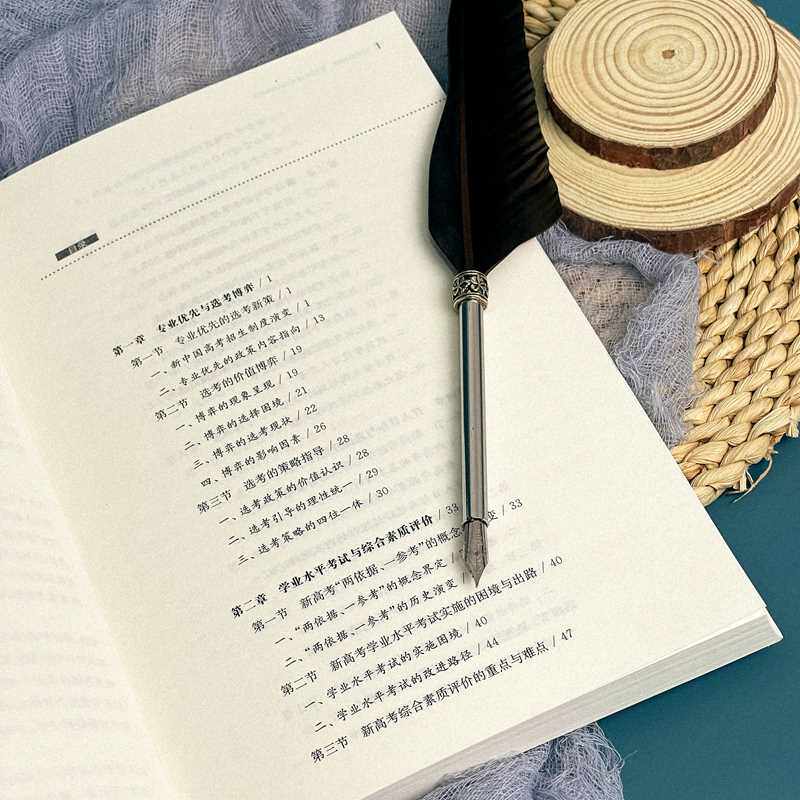 1
目录
第一章 专业优先与选考博弈 / 1
第一节 专业优先的选考新策 / 1
一、新中国高考招生制度演变 / 1
二、专业优先的政策内容指向 / 13
第二节 选考的价值博弈 / 19
一、博弈的现象呈现 / 19
二、博弈的选择困境 / 21
三、博弈的选考现状 / 22
四、博弈的影响因素 / 26
第三节 选考的策略指导 / 28
一、选考政策的价值认识 / 28
二、选考引导的理性统一 / 29
三、选考策略的四位一体 / 30
第二章 学业水平考试与综合素质评价 / 33
第一节 新高考“两依据、一参考”的概念 变 / 33
一、“两依据、一参考”的概念界定 /
二、“两依据、一参考”的历史演变
第二节 新高考学业水平考试实施的困境与出路 / 40
一、学业水平考试的实施困境 / 40
二、学业水平考试的改进路径 / 44
第三节 新高考综合素质评价的重点与难点 / 47